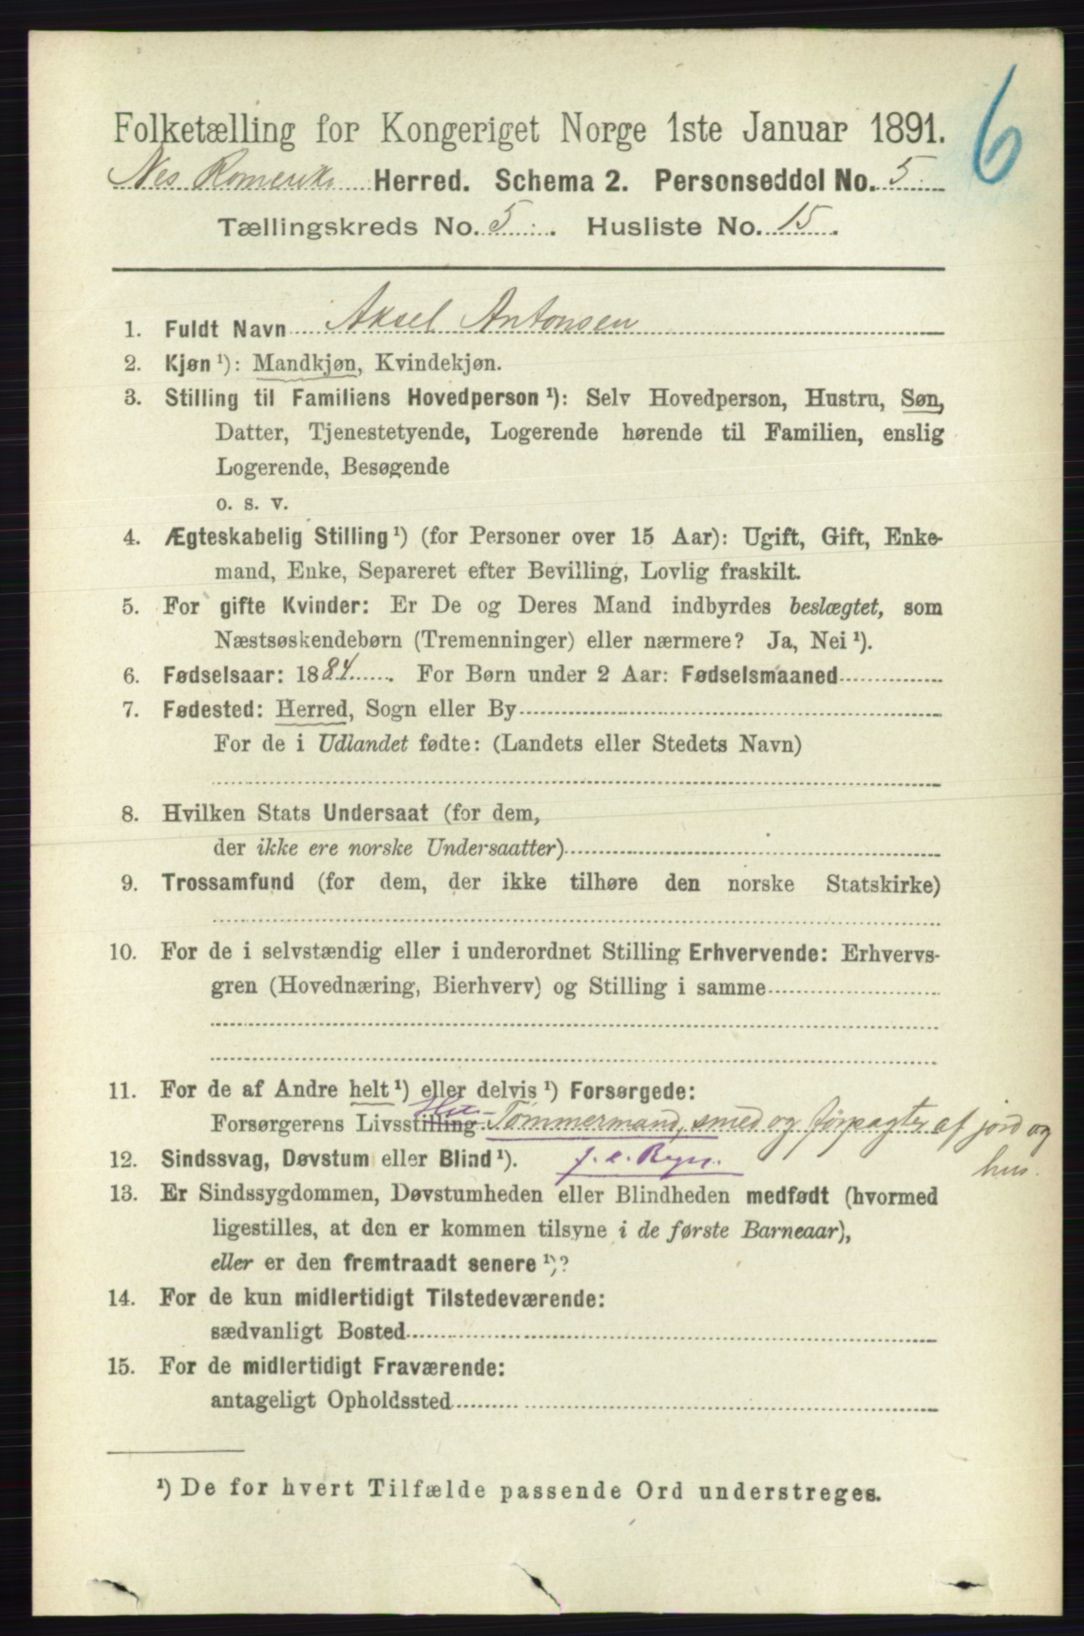 6
Folketælling for Kongeriget Norge 1ste Januar 1891.
Nes Romerike Herred. Schema 2. Personseddel No. 5
Tællingskreds No. 5. Husliste No. 15.
1. Fuldt Navn Aksel Antonsen
2. Kjøn ¹): Mandkjøn, Kvindekjøn.
3. Stilling til Familiens Hovedperson ¹): Selv Hovedperson, Hustru, Søn,
Datter, Tjenestetyende, Logerende hørende til Familien, enslig
Logerende, Besøgende
o. s. v.
4. Ægteskabelig Stilling ¹) (for Personer over 15 Aar): Ugift, Gift, Enke-
mand, Enke, Separeret efter Bevilling, Lovlig fraskilt.
5. For gifte Kvinder: Er De og Deres Mand indbyrdes beslægtet, som
Næstsøskendebørn (Tremenninger) eller nærmere? Ja, Nei ¹).
6. Fødselsaar: 1884. For Børn under 2 Aar: Fødselsmaaned
7. Fødested: Herred, Sogn eller By
For de i Udlandet fødte: (Landets eller Stedets Navn)
8. Hvilken Stats Undersaat (for dem,
der ikke ere norske Undersaatter)
9. Trossamfund (for dem, der ikke tilhøre den norske Statskirke)
10. For de i selvstændig eller i underordnet Stilling Erhvervende: Erhvervs-
gren (Hovednæring, Bierhverv) og Stilling i samme
11. For de af Andre helt ¹) eller delvis ¹) Forsørgede:
Forsørgerens Livsstilling Tømmermand, smed og forpagter af jord og
hus.
12. Sindssvag, Døvstum eller Blind ¹).
13. Er Sindssygdommen, Døvstumheden eller Blindheden medfødt (hvormed
ligestilles, at den er kommen tilsyne i de første Barneaar),
eller er den fremtraadt senere ¹)?
14. For de kun midlertidigt Tilstedeværende:
sædvanligt Bosted
15. For de midlertidigt Fraværende:
antageligt Opholdssted
¹) De for hvert Tilfælde passende Ord understreges.